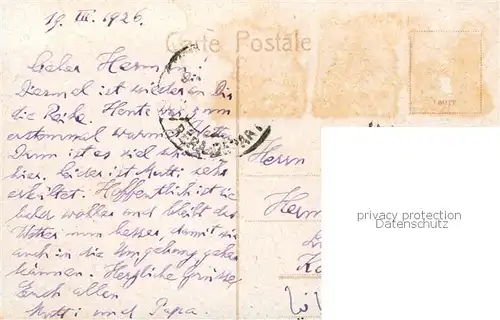 19. III. 1926.
Carte Postale
Lieber Hermann!
Diesmal ist wieder an Dir
die Reihe. Heute war zum
erstenmal warmes Wetter.
Dann ist es viel
hier. Leider ist Mutti sehr
erkältet. Hoffentlich ist sie
bald wohler und bleibt das
Wetter nun besser, damit sie
auch in die Umgebung gehen
können. Herzliche Grüsse
Euch allen
Mutti und Papa.
PERA-DEPART
Herrn
Herm
privacy protection
Datenschutz